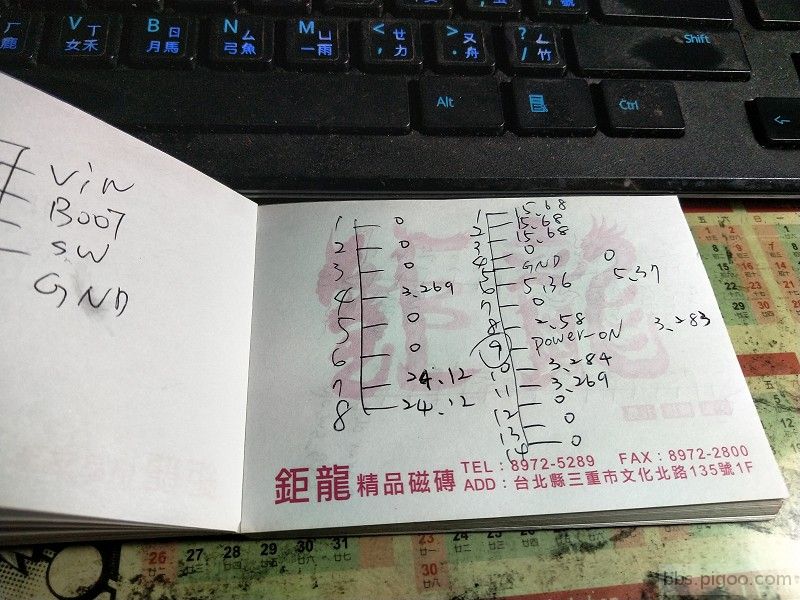 ㄏ
鹿
V ㄒ
女 禾
B ㄖ
月 馬
N ㄙ
弓 魚
M ㄩ
一 雨
< ㄝ
, 力
> ㄡ
. 舟
? ㄥ
/ 竹
Shift
Alt
Ctrl
Vin
BOOT
SW
GND
1 0
2 0
3 0
4 3.269
5 0
6 0
7 24.12
8 24.12
1 15.68
2 15.68
3 15.68
4 0
5 GND 0
6 5.36 5.37
7 0
8 2.58
9 power-ON 3.283
10 3.284
11 3.269
12 0
13 0
14 0
鉅龍 精品磁磚
TEL：8972-5289 FAX：8972-2800
ADD：台北縣三重市文化北路135號1F
26 27 28 29 30 31
bbs.pigoo.com